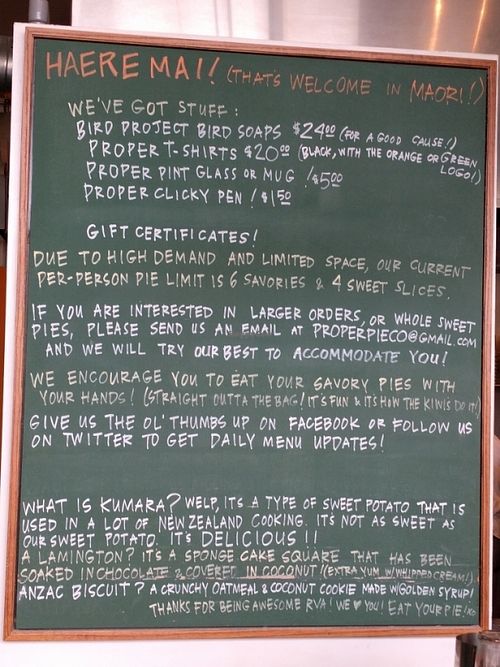 HAERE MAI! (THAT'S WELCOME IN MAORI!!)
WE'VE GOT STUFF:
BIRD PROJECT BIRD SOAPS $24.00 (FOR A GOOD CAUSE!)
PROPER T-SHIRTS $20.00 (BLACK, WITH THE ORANGE OR GREEN LOGO!)
PROPER PINT GLASS OR MUG! $5.00
PROPER CLICKY PEN! $1.50
GIFT CERTIFICATES!
DUE TO HIGH DEMAND AND LIMITED SPACE, OUR CURRENT
PER-PERSON PIE LIMIT IS 6 SAVORIES & 4 SWEET SLICES.
IF YOU ARE INTERESTED IN LARGER ORDERS, OR WHOLE SWEET
PIES, PLEASE SEND US AN EMAIL AT PROPERPIECO@GMAIL.COM
AND WE WILL TRY OUR BEST TO ACCOMMODATE YOU!
WE ENCOURAGE YOU TO EAT YOUR SAVORY PIES WITH
YOUR HANDS! (STRAIGHT OUTTA THE BAG! IT'S FUN & IT'S HOW THE KIWIS DO IT!)
GIVE US THE OL' THUMBS UP ON FACEBOOK OR FOLLOW US
ON TWITTER TO GET DAILY MENU UPDATES!
WHAT IS KUMARA? WELP, IT'S A TYPE OF SWEET POTATO THAT IS
USED IN A LOT OF NEW ZEALAND COOKING. IT'S NOT AS SWEET AS
OUR SWEET POTATO. IT'S DELICIOUS!!
A LAMINGTON? IT'S A SPONGE CAKE SQUARE THAT HAS BEEN
SOAKED IN CHOCOLATE & COVERED IN COCONUT! (EXTRA YUM W/WHIPPED CREAM!)
ANZAC BISCUIT? A CRUNCHY OATMEAL & COCONUT COOKIE MADE W/GOLDEN SYRUP!
THANKS FOR BEING AWESOME RVA! WE ♥ YOU! EAT YOUR PIE!